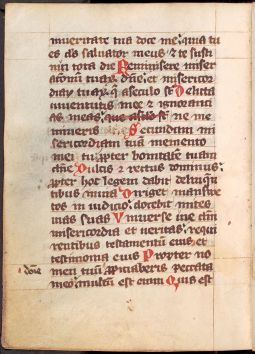 in veritate tua doce me qua tu
es ds salvator meus & te susti
nui tota die Reminiscere miser
acionu tuaƺ dne et misericor
diaƺ tuaƺ q a seculo st Delicta
iuventutis mee & ignoranci
as meas que a sclo st ne me
mineris Secundum mi
sericordiam tua memento
mei tu ppter bonitatem tuam
dne Dulcis & rectus dominus
ppter hoc legem dabit delinqu
tibus in via Diriget mansue
tos in iudicio docebit mites
vias suas Universe vie dni
misericordia et veritas requi
rentibus testamentu eius et
testimonia eius Propter no
men tuu ppiciaberis peccato
meo multu est enim Quis est